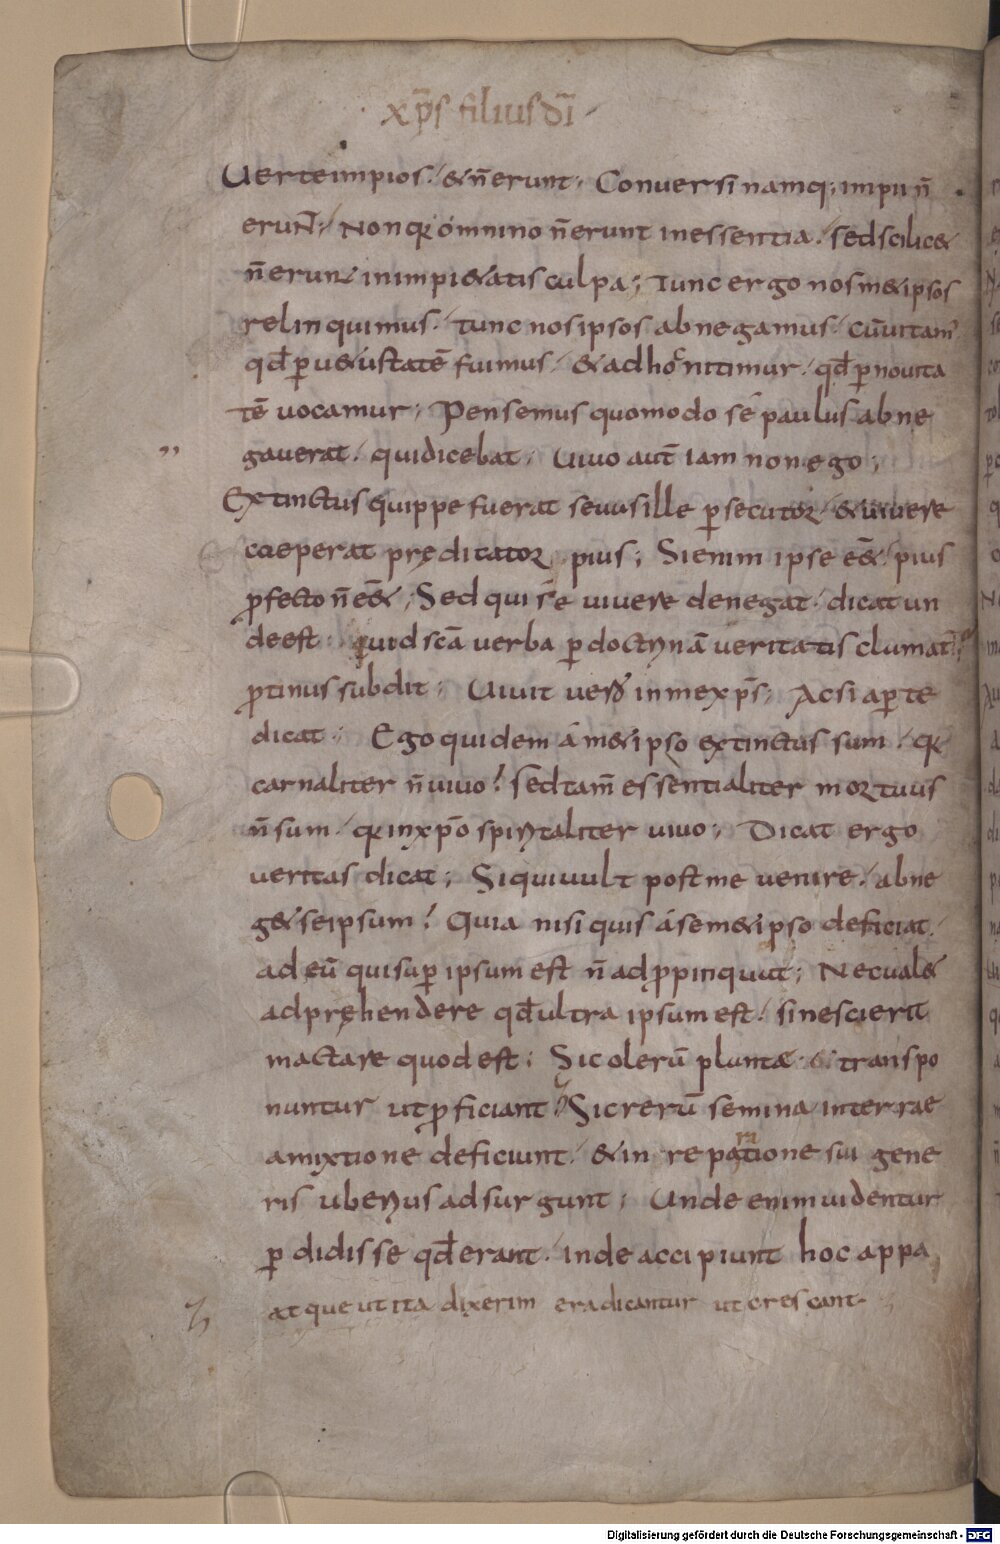 xp̄s filius dī
Uerte impios · & n̄ erunt · Conuersi namq; impii n̄
eruɴt̄ · Non qꝛ omnino n̄ erunt in essentia · sed scilic&
n̄ erunt in impi&atis culpa ; Tunc ergo nosm&ipsos
relinquimus · tunc nos ipsos abnegamus · cū uitam̄
qd̄ ꝑ u&ustatē fuimus · & ad hoc nitimur · qd̄ ꝑ nouita
tē uocamur ; Pensemus quomodo se paulus abne
gauerat · qui dicebat · Uiuo aut̄ iam non ego ;
Extinctus quippe fuerat seuus ille ꝑsecutor · & uiuere
coeperat prędicator pius ; Si enim ipse eē& pius
ꝓfecto n̄ eē& ; Sed qui se uiuere denegat · dicat un
de est quod scā uerba ꝑ doctrinā ueritatis clamat ;
ꝓtinus subdit ; Uiuit uero in me xp̄s ; Ac si aꝑte
dicat · Ego quidem a m&ipso extinctus sum · qꝛ
carnaliter n̄ uiuo ! sed tam̄ essentialiter mortuus
n̄ sum · qꝛ in xp̄o spiritaliter uiuo ; Dicat ergo
ueritas dicat ; Si qui uult post me uenire · abne
g& se ipsum ! Quia nisi quis a sem&ipso deficiat ·
ad eū qui suꝑ ipsum est n̄ adꝓpinquat ; Nec ual&
adprehendere qd̄ ultra ipsum est · si nescierit
mactare quod est ; Sic olerū plantæ transpo
nuntur ut ꝓficiant ; Sic rerū semina in terrae
amixtione deficiunt · & in repa
ra
tione sui gene
ris uberius adsurgunt ; Unde enim uidentur
ꝑdidisse qd̄ erant · inde accipiunt hoc appa
atque ut ita dixerim eradicantur ut crescant
Digitalisierung gefördert durch die Deutsche Forschungsgemeinschaft - DFG